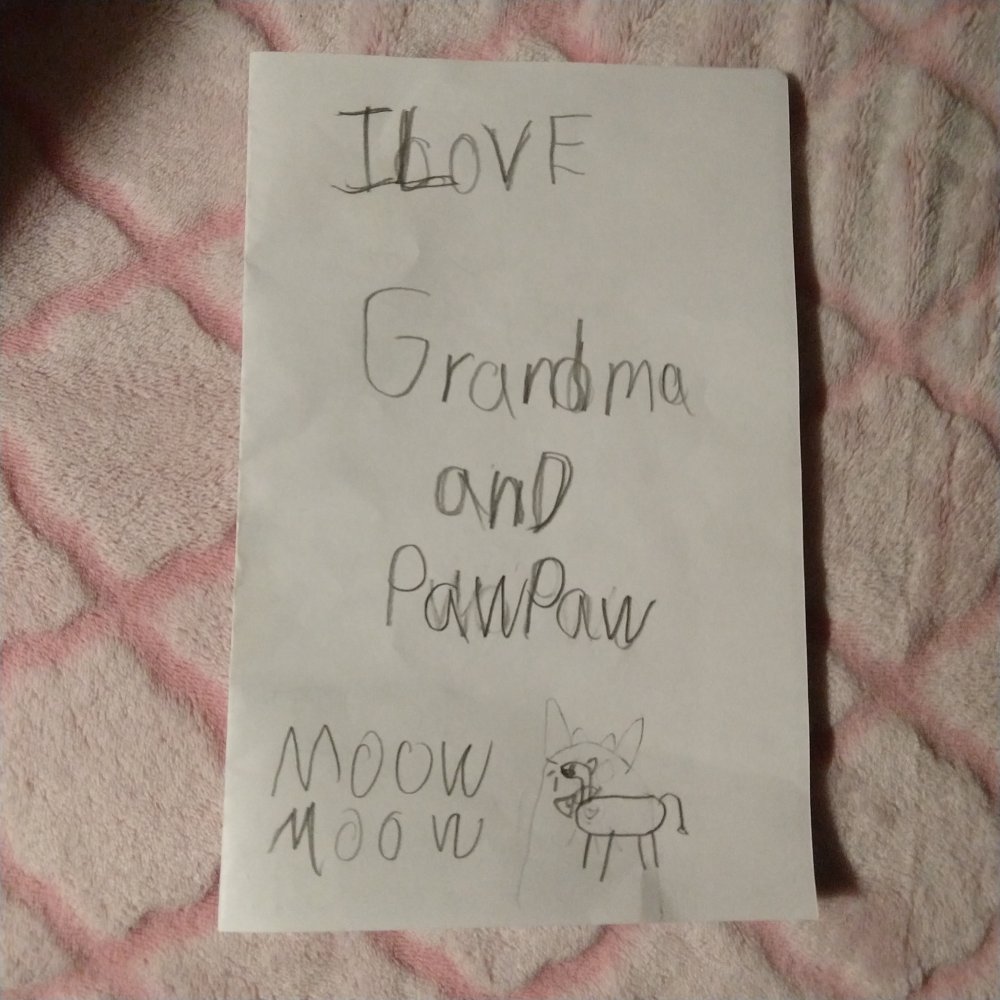 I LOVE
Grandma
anD
PawPaw
MOOW
MOOW